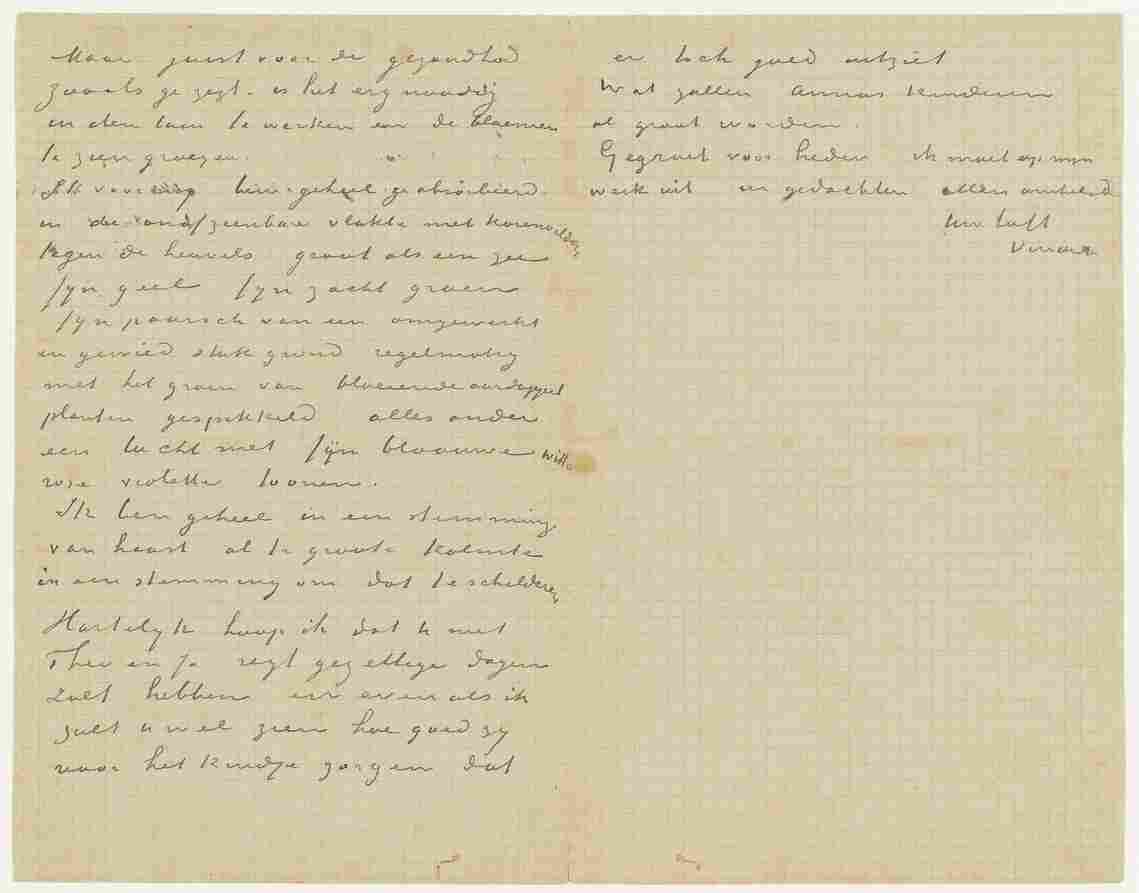 Maar juist voor de gezondheid
zooals ge zegt – is het erg noodig
in den tuin te werken en de bloemen
te zien groeien.
Ik voor mij ben geheel geabsorbeerd
in die oneindige vlakte met korenvelden
tegen de heuvels groot als een zee
fijn geel fijn zacht groen
fijn paarsch van een omgewerkt
en gewied stuk grond regelmatig
met het groen van bloeiende aardappel
planten gespikkeld alles onder
een lucht met fijn blaauwe witte
rose violette toonen.
Ik ben geheel in een stemming
van haast al te groote kalmte
in een stemming om dat te schilderen
Hartelyk hoop ik dat U met
Theo en Jo regt gezellige dagen
zult hebben en even als ik
zult U wel zien hoe goed zy
voor het kindje zorgen dat
er toch goed uitziet
Wat zullen Annas kinderen
al groot worden.
Gegroet voor heden ik moet op myn
werk uit in gedachten allen omhelsd
Uw liefh
Vincent